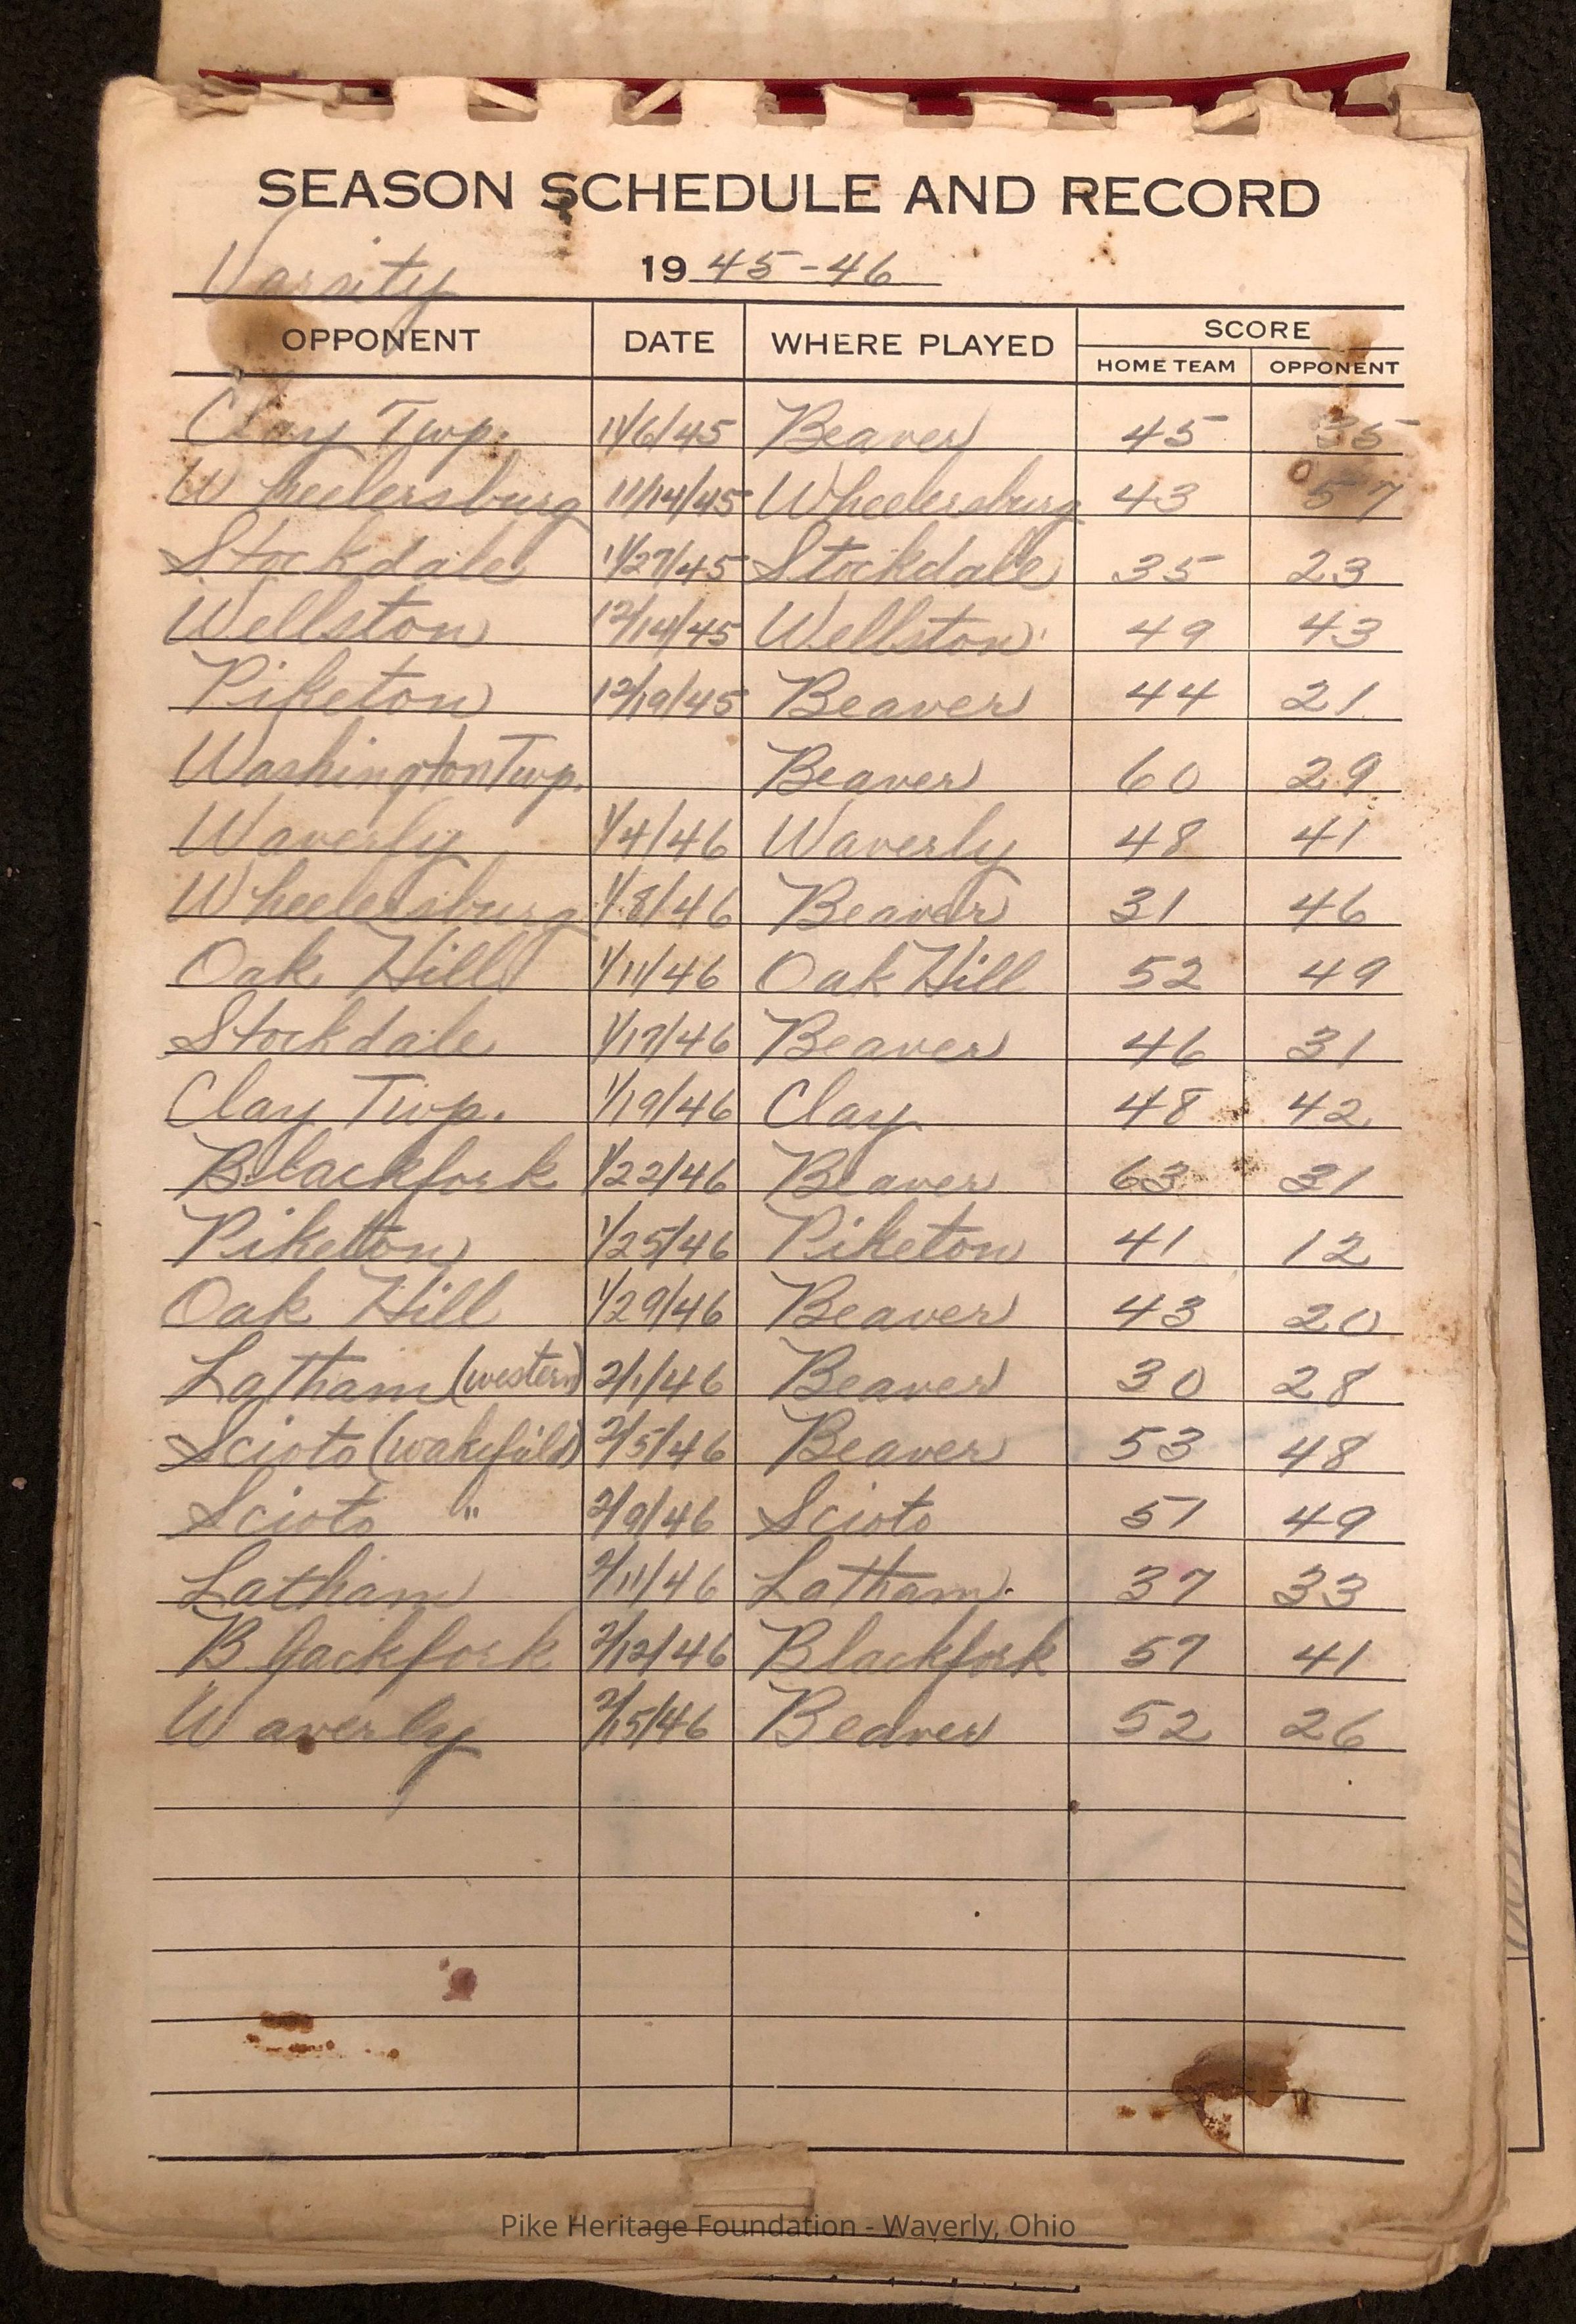 SEASON SCHEDULE AND RECORD
Varsity 1945-46
OPPONENT DATE WHERE PLAYED SCORE
HOME TEAM OPPONENT
Clay Twp. 11/6/45 Beaver 45 35
Wheelersburg 11/14/45 Wheelersburg 43 57
Stockdale 11/27/45 Stockdale 35 23
Wellston 12/14/45 Wellston 49 43
Piketon 12/19/45 Beaver 44 21
Washington Twp. Beaver 60 29
Waverly 1/4/46 Waverly 48 41
Wheelersburg 1/8/46 Beaver 31 46
Oak Hill 1/11/46 Oak Hill 52 49
Stockdale 1/17/46 Beaver 46 31
Clay Twp. 1/19/46 Clay 48 42
Blackfork 1/22/46 Beaver 63 31
Piketon 1/25/46 Piketon 41 12
Oak Hill 1/29/46 Beaver 43 20
Latham (western) 2/1/46 Beaver 30 28
Scioto (wakefield) 2/5/46 Beaver 53 48
Scioto " 2/9/46 Scioto 51 49
Latham 2/11/46 Latham. 37 33
Blackfork 2/12/46 Blackfork 57 41
Waverly 2/15/46 Beaver 52 26
Pike Heritage Foundation - Waverly, Ohio